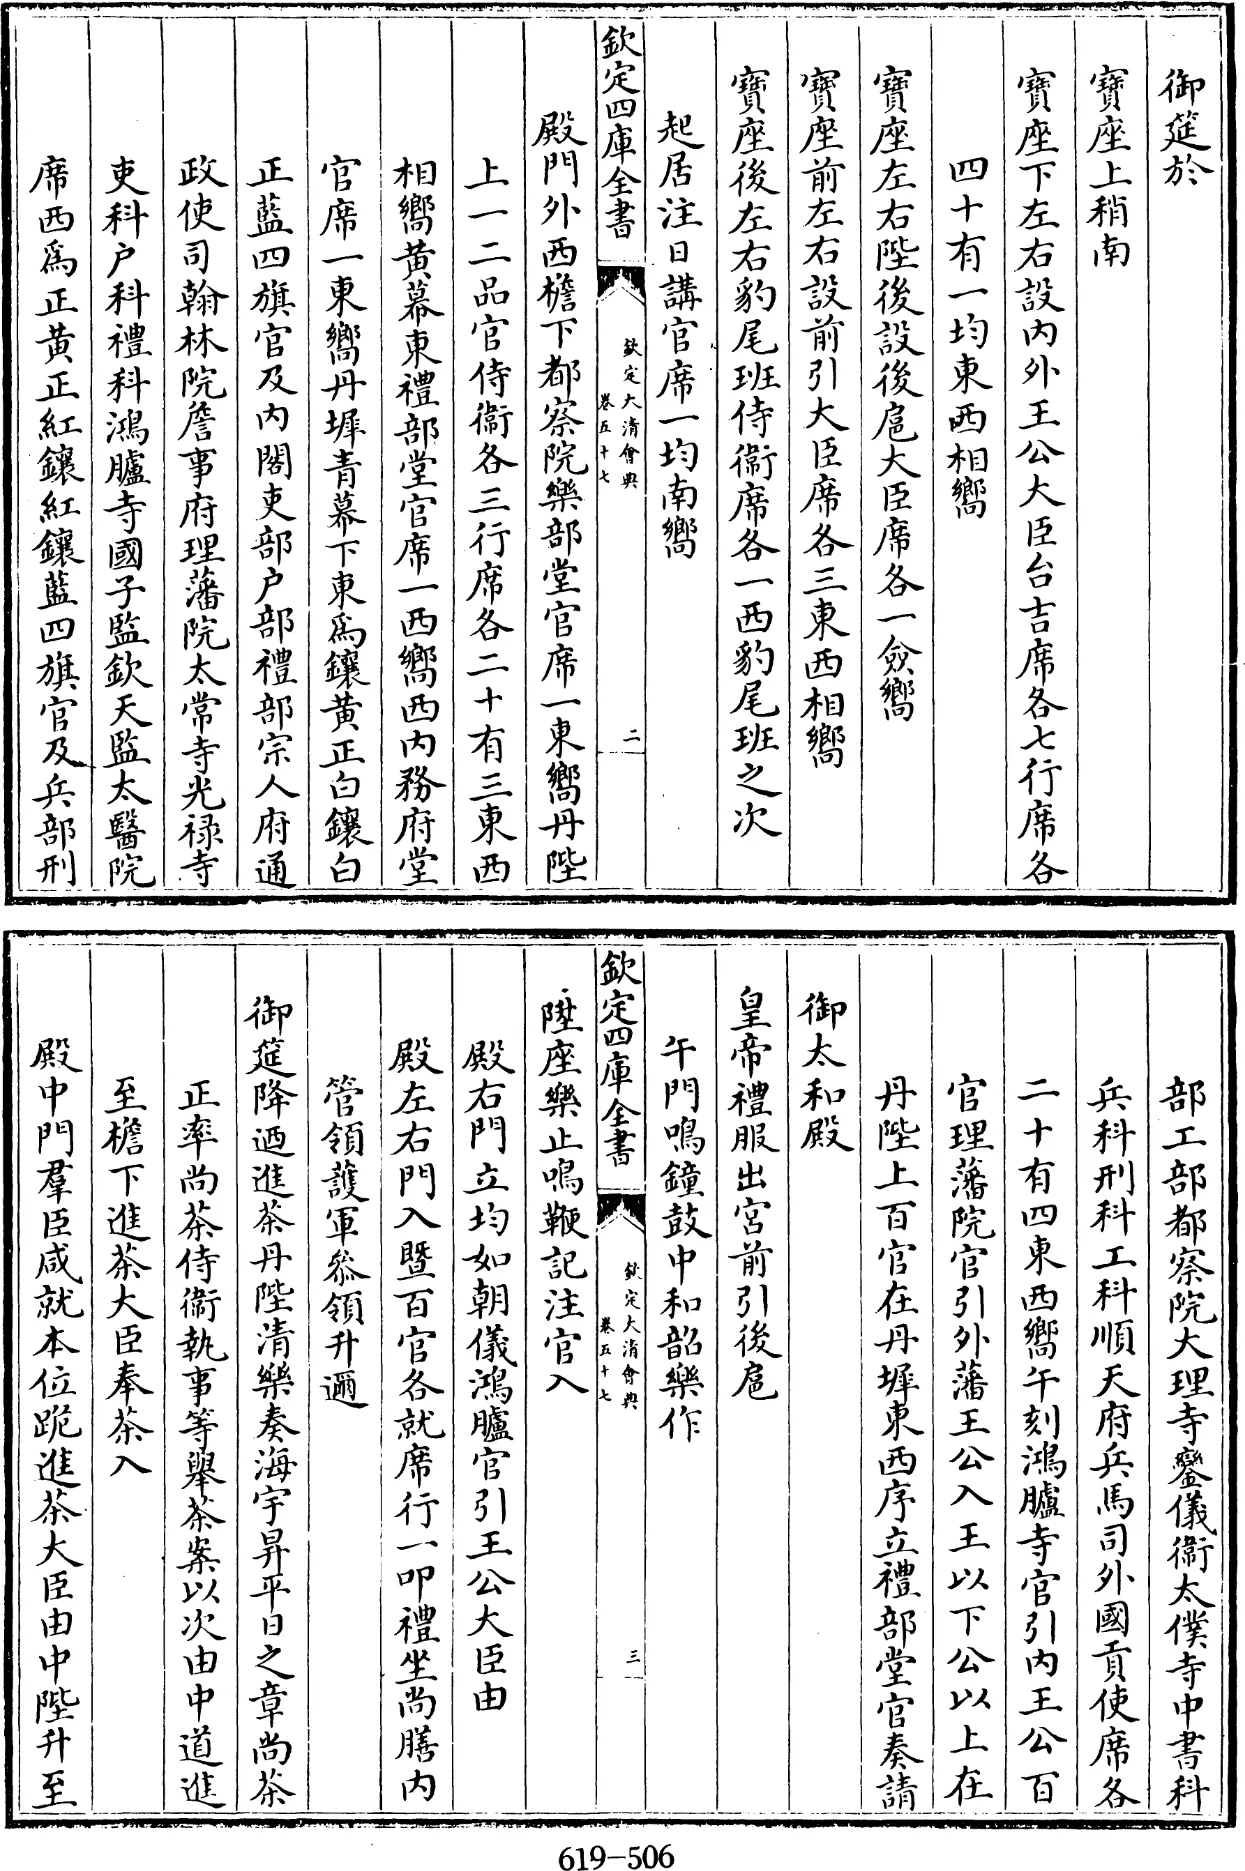 御筵於
寶座上稍南
寶座下左右設内外王公大臣台吉席各七行席各
四十有一均東西相嚮
寶座左右陛後設後扈大臣席各一僉嚮
寶座前左右設前引大臣席各三東西相嚮
寶座後左右豹尾班侍衞席各一西豹尾班之次
起居注日講官席一均南嚮
欽定四庫全書
欽定大清會典
卷五十七
二
殿門外西檐下都察院樂部堂官席一東嚮丹陛
上一二品官侍衞各三行席各二十有三東西
相嚮黄幕東禮部堂官席一西嚮西内務府堂
官席一東嚮丹墀青幕下東爲鑲黄正白鑲白
正藍四旗官及内閣吏部户部禮部宗人府通
政使司翰林院詹事府理藩院太常寺光禄寺
吏科户科禮科鴻臚寺國子監欽天監太醫院
席西爲正黄正紅鑲紅鑲藍四旗官及兵部刑
部工部都察院大理寺鑾儀衞太僕寺中書科
兵科刑科工科順天府兵馬司外國貢使席各
二十有四東西嚮午刻鴻臚寺官引内王公百
官理藩院官引外藩王公入王以下公以上在
丹陛上百官在丹墀東西序立禮部堂官奏請
御太和殿
皇帝禮服出宮前引後扈
午門鳴鐘鼓中和韶樂作
欽定四庫全書
欽定大清會典
卷五十七
三
陞座樂止鳴鞭記注官入
殿右門立均如朝儀鴻臚官引王公大臣由
殿左右門入暨百官各就席行一叩禮坐尚膳内
管領護軍叅領升邇
御筵降迺進茶丹陛清樂奏海宇昇平日之章尚茶
正率尚茶侍衞執事等舉茶案以次由中道進
至檐下進茶大臣奉茶入
殿中門羣臣咸就本位跪進茶大臣由中陛升至
619-506